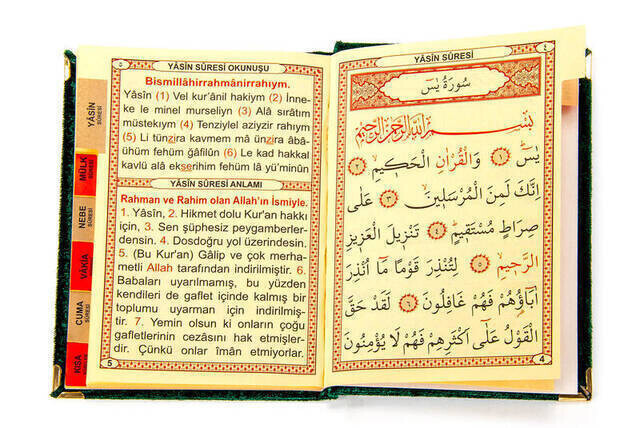 ٤
YÂSİN SÛRESİ
سُورَةُ يٰسۤ
بِسْمِ اللّٰهِ الرَّحْمٰنِ الرَّحِيمِ
يٰسۤ ﴿١﴾ وَالْقُرْاٰنِ الْحَكِيمِ ﴿٢﴾
اِنَّكَ لَمِنَ الْمُرْسَلِينَ ﴿٣﴾ عَلٰى
صِرَاطٍ مُسْتَقِيمٍ ﴿٤﴾ تَنْزِيلَ الْعَزِيزِ
الرَّحِيمِ ﴿٥﴾ لِتُنْذِرَ قَوْمًا مَا اُنْذِرَ
اٰبَاؤُهُمْ فَهُمْ غَافِلُونَ ﴿٦﴾ لَقَدْ حَقَّ
الْقَوْلُ عَلٰى اَكْثَرِهِمْ فَهُمْ لَا يُؤْمِنُونَ
4
٥
YÂSİN SÛRESİ OKUNUŞU
Bismillâhirrahmânirrahıym.
Yâsîn (1) Vel kur'ânil hakiym (2) İnne-
ke le minel murseliyn (3) Alâ sırâtım
müstekıym (4) Tenziylel aziyzir rahıym
(5) Li tünzira kavmem mâ ünzira âbâ-
ühüm fehüm gâfilûn (6) Le kad hakkal
kavlü alâ ekserihim fehüm lâ yü'minûn
YÂSİN SÛRESİ ANLAMI
Rahman ve Rahim olan Allah'ın İsmiyle.
1. Yâsîn, 2. Hikmet dolu Kur'an hakkı
için, 3. Sen şüphesiz peygamberler-
densin. 4. Dosdoğru yol üzerindesin.
5. (Bu Kur'an) Gâlip ve çok merha-
metli Allah tarafından indirilmiştir. 6.
Babaları uyarılmamış, bu yüzden
kendileri de gaflet içinde kalmış bir
toplumu uyarman için indirilmiş-
tir. 7. Yemin olsun ki onların çoğu
gafletlerinin cezasını hak etmişler-
dir. Çünkü onlar îmân etmiyorlar.
5
YÂSİN
SÛRESİ
MÜLK
SÛRESİ
NEBE
SÛRESİ
VÂKIA
CUMA
SÛRESİ
KISA